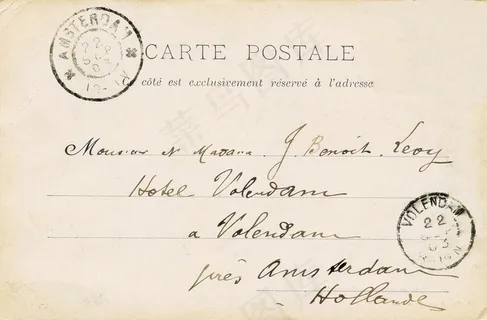 AMSTERDAM
22
CARTE POSTALE
Ce côté est exclusivement réservé à l'adresse
Monsieur & Madame J. Benoit-Levy
Hotel Volendam
a Volendam
près Amsterdam
Hollande
VOLENDAM
22